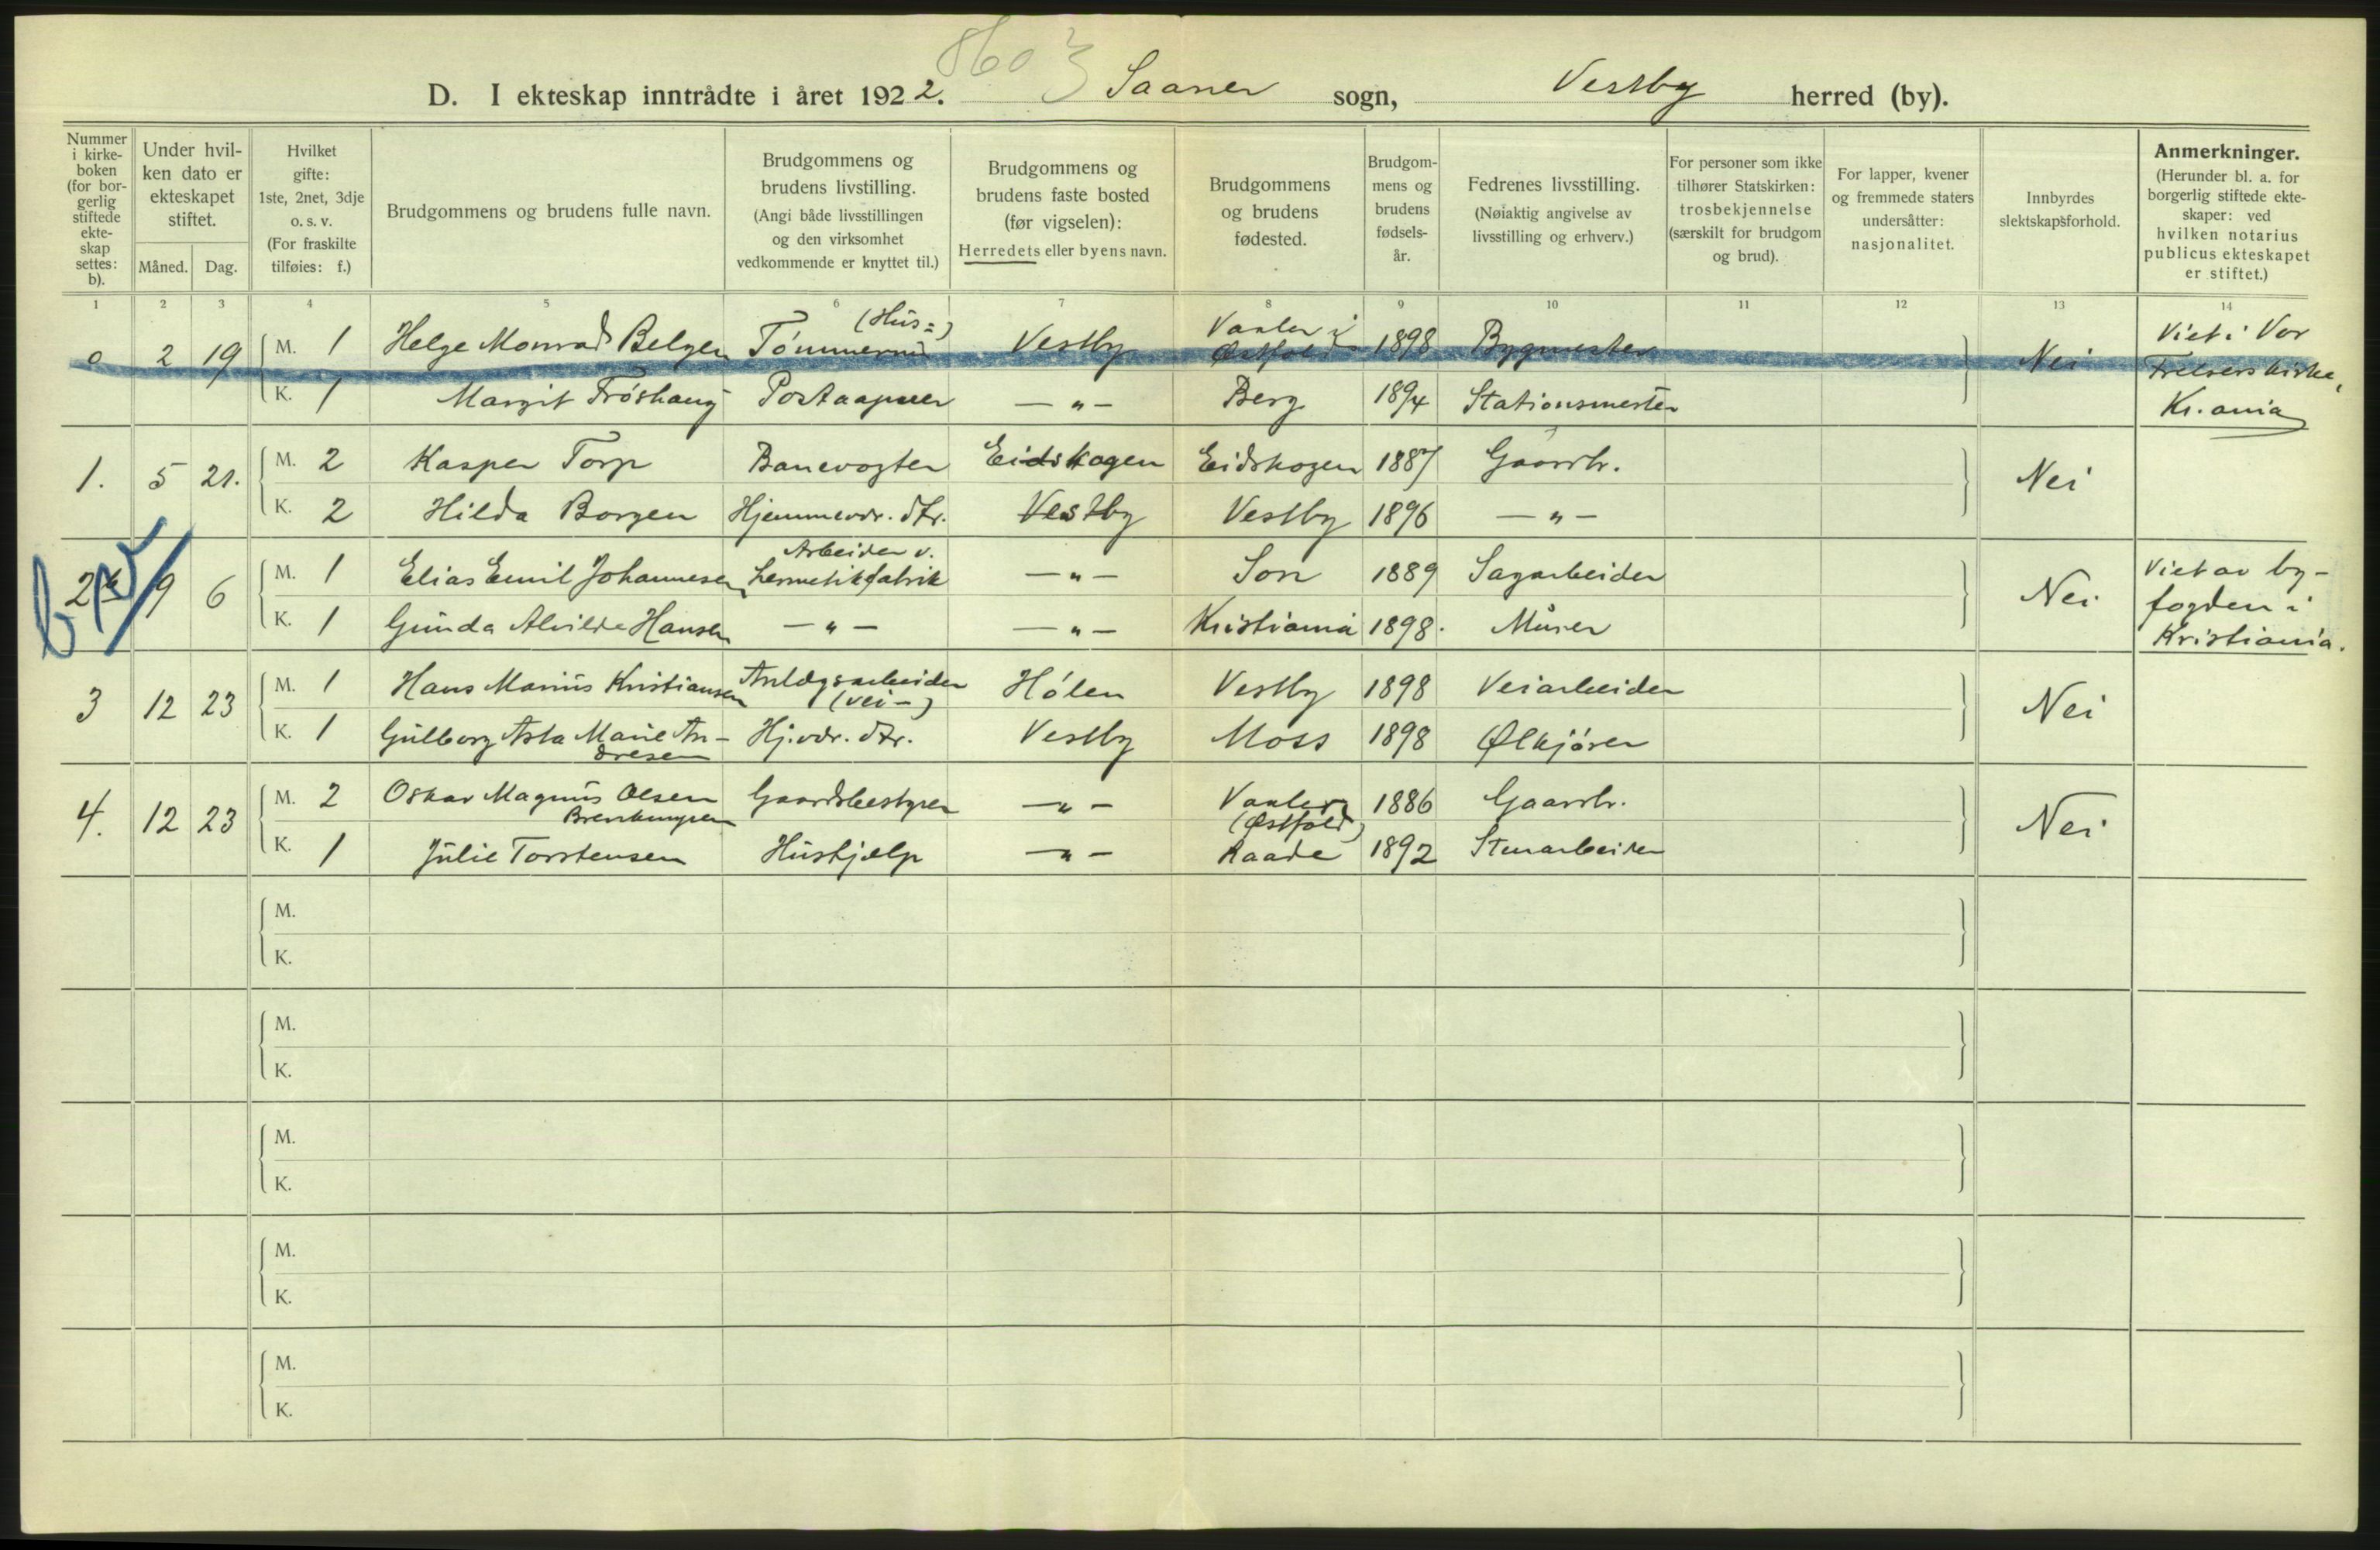 8603
D. I ekteskap inntrådte i året 1922. Saaner sogn, Vestby herred (by).
Nummer i kirke-boken (for bor-gerlig stiftede ekte-skap settes: b).
Under hvil-ken dato er ekteskapet stiftet.
Måned. Dag.
Hvilket gifte: 1ste, 2net, 3dje o. s. v. (For fraskilte tilføies: f.)
Brudgommens og brudens fulle navn.
Brudgommens og brudens livstilling. (Angi både livsstillingen og den virksomhet vedkommende er knyttet til.)
Brudgommens og brudens faste bosted (før vigselen): Herredets eller byens navn.
Brudgommens og brudens fødested.
Brudgom-mens og brudens fødsels-år.
Fedrenes livsstilling. (Nøiaktig angivelse av livsstilling og erhverv.)
For personer som ikke tilhører Statskirken: trosbekjennelse (særskilt for brudgom og brud).
For lapper, kvener og fremmede staters undersåtter: nasjonalitet.
Innbyrdes slektskapsforhold.
Anmerkninger. (Herunder bl. a. for borgerlig stiftede ekte-skaper: ved hvilken notarius publicus ekteskapet er stiftet.)
1 2 3 4 5 6 7 8 9 10 11 12 13 14
0 2 19 M. 1 Helge Monrad Belgen (Hus=) Tömmermd Vestby Vaaler i Østfold 1898 Bygmester Nei Viet i Vor Frelsers kirke,
K. 1 Margit Fröshaug Postaapner —"— Berg 1894 Stationsmester Kr.ania
1. 5 21. M. 2 Kasper Torp Banevogter Eidskogen Eidskogen 1887 Gaardbr. Nei
K. 2 Hilda Borgen Hjemmevær. dtr. Vestby Vestby 1896 —"—
2 9 6 M. 1 Elias Emil Johannesen Arbeider v. hermetikfabrik —"— Son 1889 Sagarbeider Nei Viet av by-
fogden i
K. 1 Gunda Alvilde Hansen —"— —"— Kristiania 1898. Murer Kristiania.
3 12 23 M. 1 Hans Marius Kristiansen Anlægsarbeider (vei-) Hölen Vestby 1898 Veiarbeider Nei
K. 1 Gulborg Asta Marie An-dresen Hj.vær. dtr. Vestby Moss 1898 Ølkjörer
4. 12 23 M. 2 Oskar Magnus Olsen Gaardsbestyrer —"— Vaaler (Østfold) 1886 Gaardbr. Nei
K. 1 Julie Torstensen Hushjælp —"— Raade 1892 Stenarbeider
M.
K.
M.
K.
M.
K.
M.
K.
M.
K.